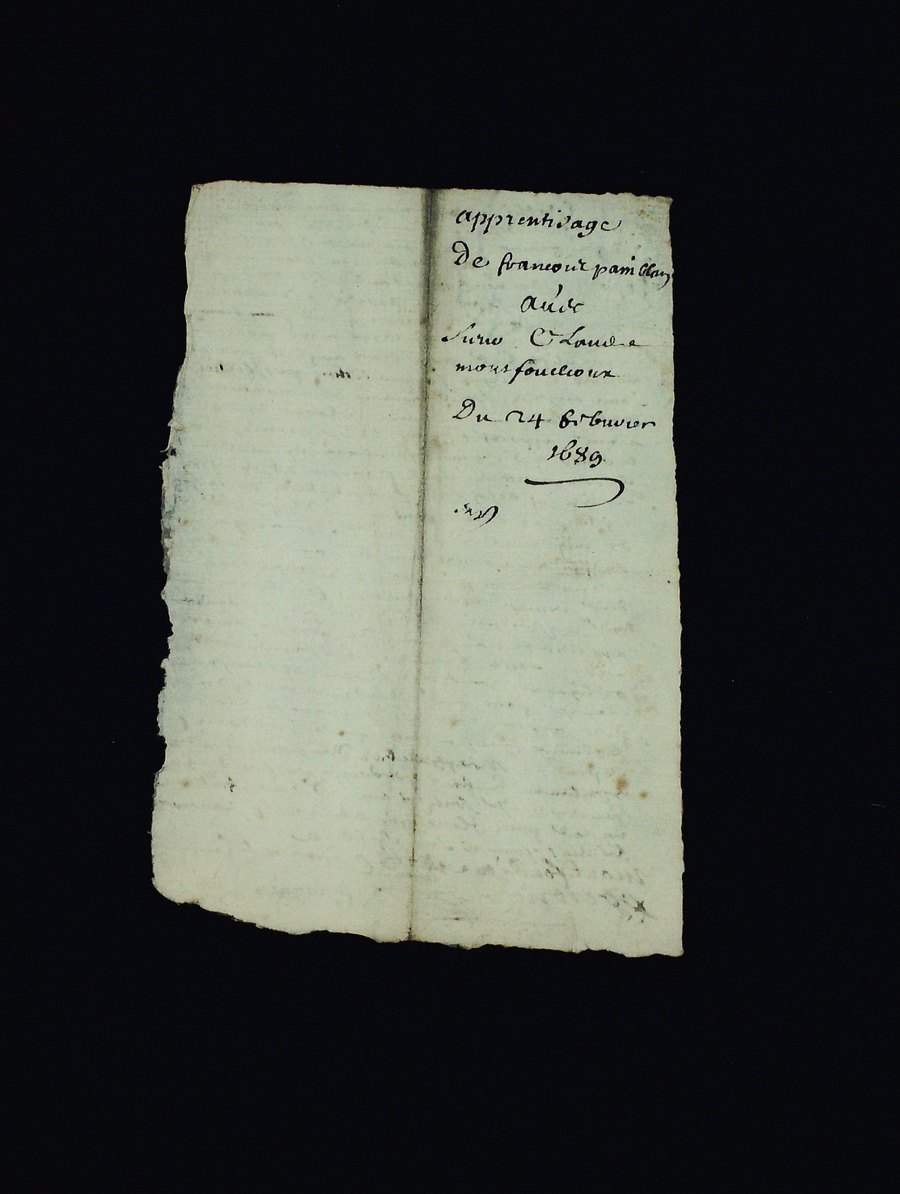 apprentisage
De francois pain blanc
avec
sieur Claude
montfoulloux
Du 24 febvrier
1689